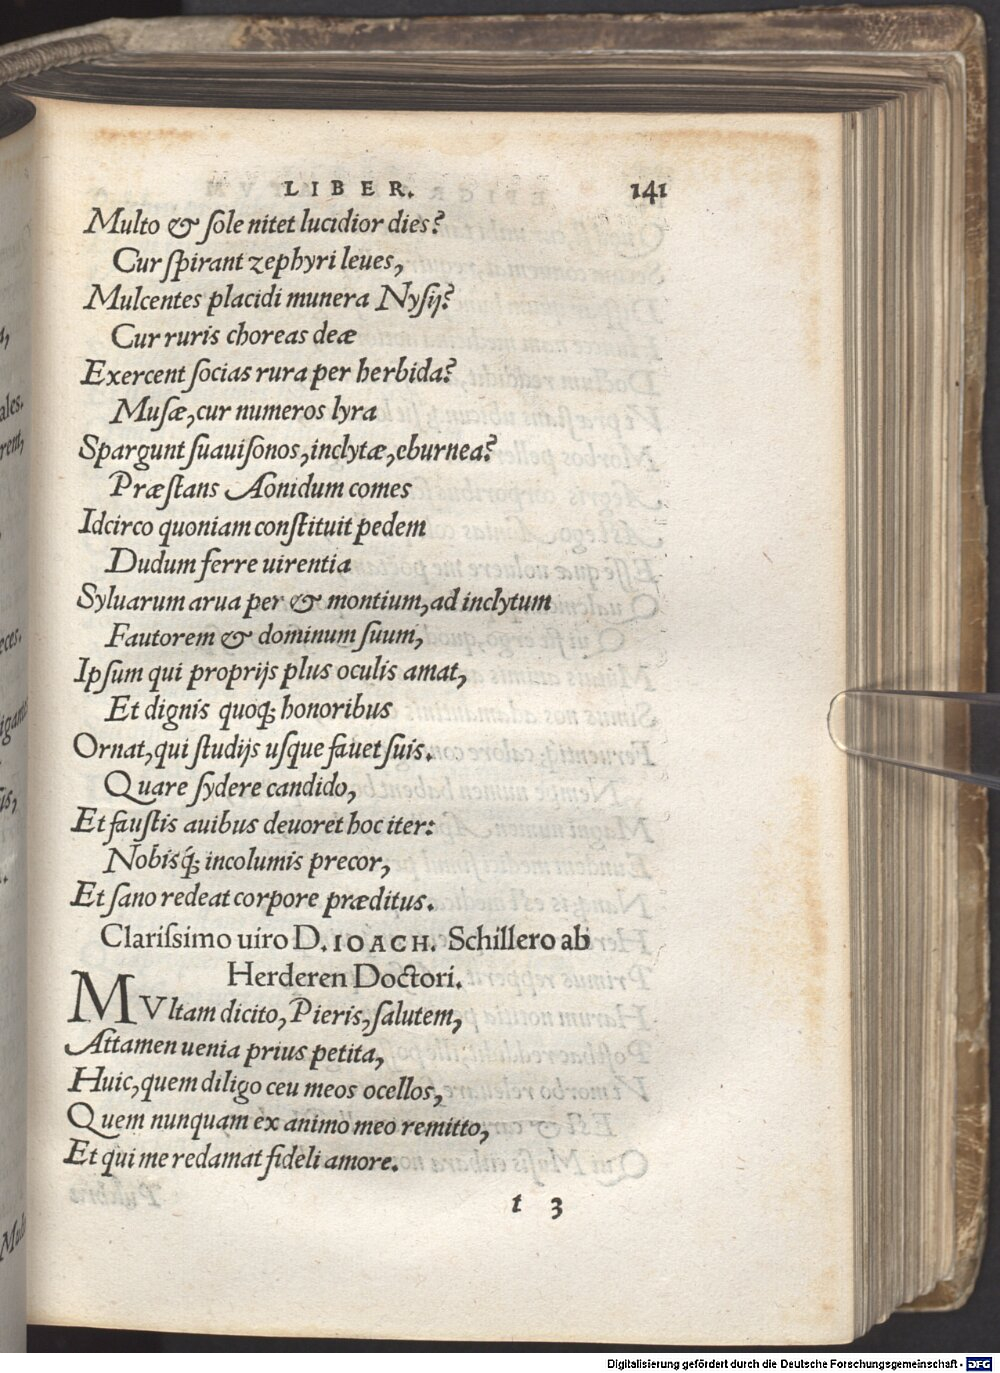 LIBER. 141
Multo & sole nitet lucidior dies?
Cur spirant zephyri leues,
Mulcentes placidi munera Nysij?
Cur ruris choreas deæ
Exercent socias rura per herbida?
Musæ, cur numeros lyra
Spargunt suauisonos, inclytæ, eburnea?
Præstans Aonidum comes
Idcirco quoniam constituit pedem
Dudum ferre uirentia
Syluarum arua per & montium, ad inclytum
Fautorem & dominum suum,
Ipsum qui proprijs plus oculis amat,
Et dignis quoq; honoribus
Ornat, qui studijs usque fauet suis.
Quare sydere candido,
Et faustis auibus deuoret hoc iter:
Nobisq́; incolumis precor,
Et sano redeat corpore præditus.
Clarissimo uiro D. IOACH. Schillero ab
Herderen Doctori.
MVltam dicito, Pieris, salutem,
Attamen uenia prius petita,
Huic, quem diligo ceu meos ocellos,
Quem nunquam ex animo meo remitto,
Et qui me redamat fideli amore.
t 3
Digitalisierung gefördert durch die Deutsche Forschungsgemeinschaft - DFG